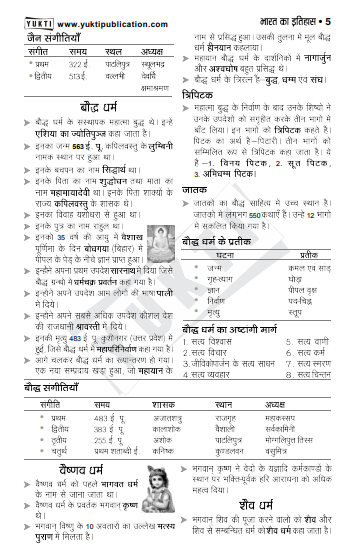 YUKTI www.yuktipublication.com
भारत का इतिहास • 5
जैन संगीतियाँ
संगीत समय स्थल अध्यक्ष
* प्रथम 322 ई. पाटलिपुत्र स्थूलभद्र
* द्वितीय 513ई. वल्लभी देवर्धि
क्षमाश्रमण
बौद्ध धर्म
➤ बौद्ध धर्म के संस्थापक महात्मा बुद्ध थे। इन्हें
एशिया का ज्योतिपुञ्ज कहा जाता है।
➤ इनका जन्म 563 ई. पू. कपिलवस्तु के लुम्बिनी
नामक स्थान पर हुआ था।
➤ इनके बचपन का नाम सिद्धार्थ था।
➤ इनके पिता का नाम शुद्धोधन तथा माता का
नाम महामायादेवी था। इनके पिता शाक्यों के
राज्य कपिलवस्तु के शासक थे।
➤ इनका विवाह यशोधरा से हुआ था।
➤ इनके पुत्र का नाम राहुल था।
➤ इनको 35 वर्ष की आयु में वैशाख
पूर्णिमा के दिन बोधगया (बिहार) में
पीपल के पेड़ के नीचे ज्ञान प्राप्त हुआ।
➤ इन्होंने अपना प्रथम उपदेश सारनाथ में दिया जिसे
बौद्ध ग्रन्थों में धर्मचक्र प्रवर्तन कहा गया है।
➤ इन्होंने अपने उपदेश आम लोगों की भाषा पाली
में दिये।
➤ इन्होंने अपने सबसे अधिक उपदेश कौशल देश
की राजधानी श्रावस्ती में दिये।
➤ इनकी मृत्यु 483 ई. पू. कुशीनगर (उत्तर प्रदेश) में
हुई, जिसे बौद्ध धर्म में महापरिनिर्वाण कहा गया है।
➤ आगे चलकर बौद्ध धर्म का रूपान्तरण हो गया।
एक नया सम्प्रदाय खड़ा हुआ, जो महायान के
नाम से प्रसिद्ध हुआ। उसकी तुलना में मूल बौद्ध
धर्म हीनयान कहलाया।
➤ महायान बौद्ध धर्म के दार्शनिकों में नागार्जुन
और अश्वघोष बहुत प्रसिद्ध थे।
➤ बौद्ध धर्म के त्रिरत्न हैं–बुद्ध, धम्म एवं संघ।
त्रिपिटक
➤ महात्मा बुद्ध के निर्वाण के बाद उनके शिष्यों ने
उनके उपदेशों को संगृहीत करके तीन भागों में
बाँट लिया। इन भागों को त्रिपिटक कहते हैं।
पिटक का अर्थ है–पिटारी। तीन भागों को
सम्मिलित रूप से त्रिपिटक कहा जाता है। ये
हैं –1. विनय पिटक, 2. सूत पिटक,
3. अभिधम्म पिटक।
जातक
➤ जातकों का बौद्ध साहित्य में उच्च स्थान है।
जातकों में लगभग 550 कथाएँ हैं। उन्हें 12 भागों
में संकलित किया गया है।
बौद्ध धर्म के प्रतीक
घटना प्रतीक
* जन्म कमल एवं साड़
* गृह-त्याग घोड़ा
* ज्ञान पीपल वृक्ष
* निर्वाण पद-चिह्न
* मृत्यु स्तूप
बौद्ध धर्म का अष्टांगी मार्ग
1. सत्य विश्वास 5. सत्य वाणी
2. सत्य विचार 6. सत्य कर्म
3. जीविकोपार्जन के सत्य साधन 7. सत्य स्मरण
4. सत्य व्यवहार 8. सत्य चिन्तन
बौद्ध संगीतियाँ
संगीति समय शासक स्थान अध्यक्ष
* प्रथम 483 ई. पू. अजातशत्रु राजगृह महाकस्सप
* द्वितीय 383 ई. पू. कालाशोक वैशाली सर्वकामिनी
* तृतीय 255 ई. पू. अशोक पाटलिपुत्र मोग्गलिपुत्त तिस्स
* चतुर्थ प्रथम शताब्दी ई. कनिष्क कुण्डलवन वसुमित्र
वैष्णव धर्म
➤ वैष्णव धर्म को पहले भागवत धर्म
के नाम से जाना जाता था।
➤ वैष्णव धर्म के प्रवर्तक भगवान् कृष्ण
थे।
➤ भगवान् विष्णु के 10 अवतारों का उल्लेख मत्स्य
पुराण में मिलता है।
➤ भगवान् कृष्ण ने वेदों के यज्ञादि कर्मकाण्डों के
स्थान पर भक्ति-पूर्वक हरि आराधना को अधिक
महत्व दिया।
शैव धर्म
➤ भगवान् शिव की पूजा करने वालों को शैव और
शिव से सम्बन्धित धर्म को शैव धर्म कहा जाता है।
YUKTI